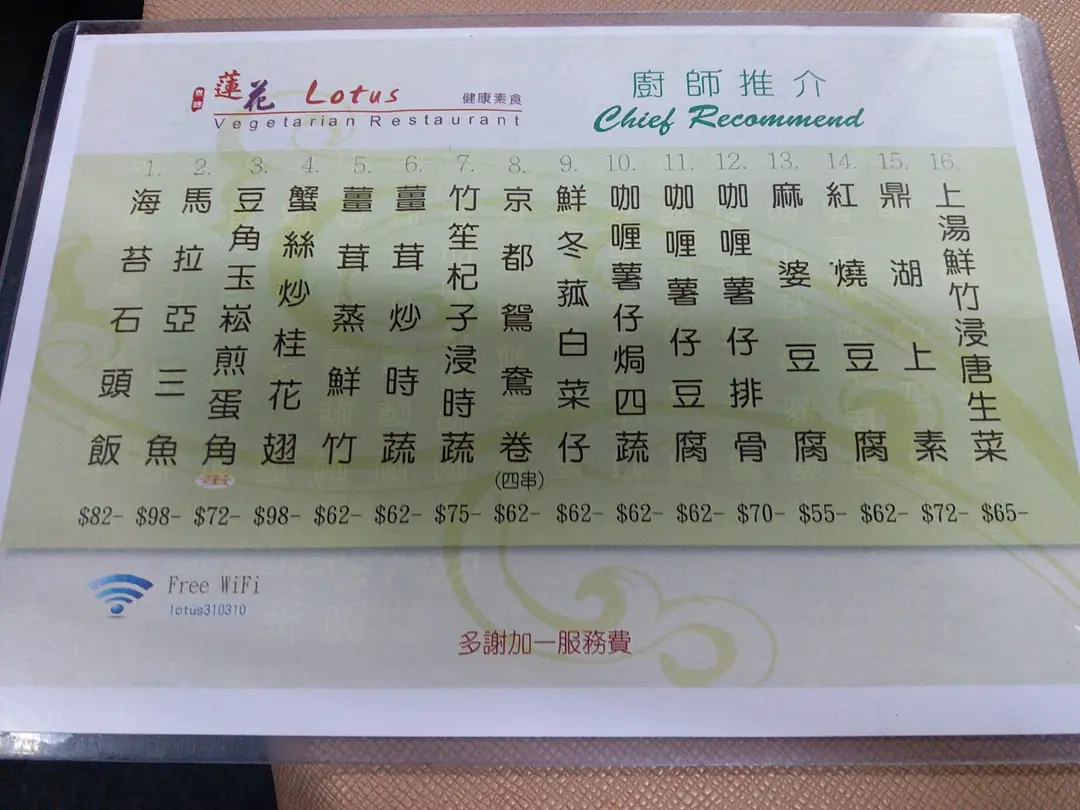 素食 蓮花 Lotus 健康素食
Vegetarian Restaurant
廚師推介
Chief Recommend
1. 海苔石頭飯 $82-
2. 馬拉亞三魚 $98-
3. 豆角玉崧煎蛋角 蛋 $72-
4. 蟹絲炒桂花翅 $98-
5. 薑茸蒸鮮竹 $62-
6. 薑茸炒時蔬 $62-
7. 竹笙杞子浸時蔬 $75-
8. 京都鴛鴦卷 (四串) $62-
9. 鮮冬菰白菜仔 $62-
10. 咖喱薯仔焗四蔬 $62-
11. 咖喱薯仔豆腐 $62-
12. 咖喱薯仔排骨 $70-
13. 麻婆豆腐 $55-
14. 紅燒豆腐 $62-
15. 鼎湖上素 $72-
16. 上湯鮮竹浸唐生菜 $65-
Free WiFi
lotus310310
多謝加一服務費